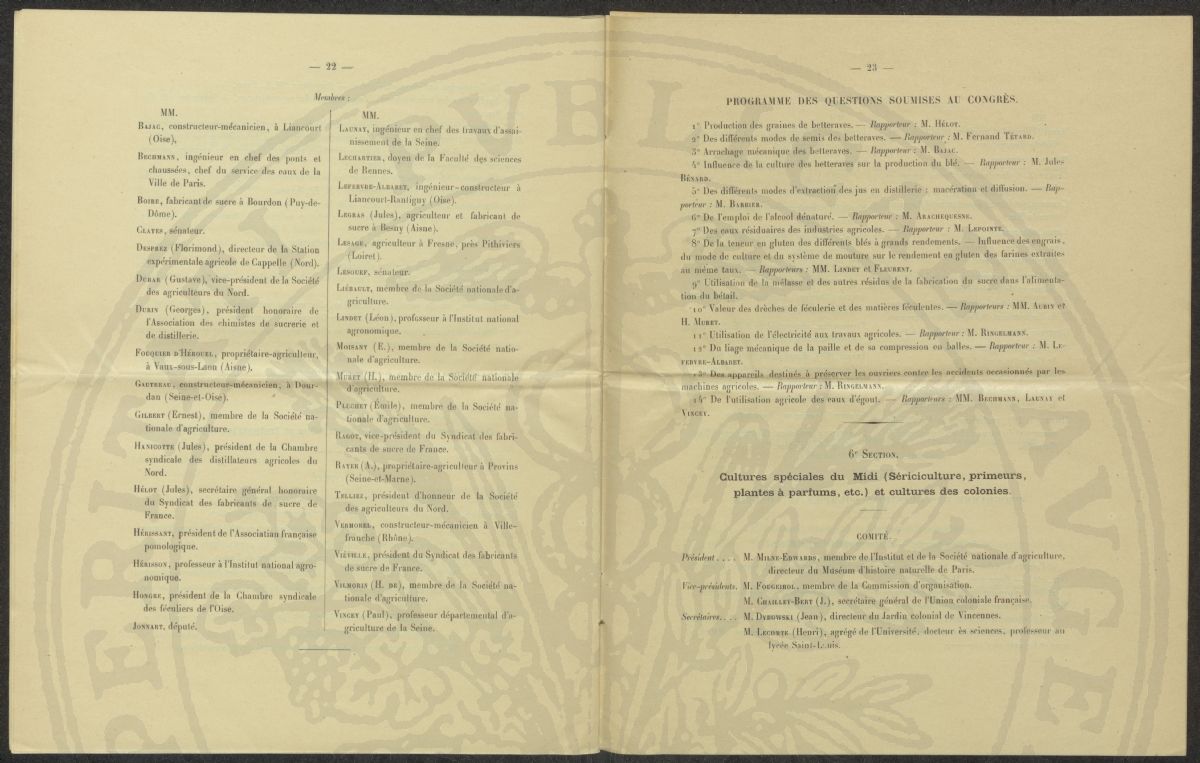 — 22 —
Membres :
MM.
BAJAC, constructeur-mécanicien, à Liancourt
(Oise).
BECHMANN, ingénieur en chef des ponts et
chaussées, chef du service des eaux de la
Ville de Paris.
BOIRE, fabricant de sucre à Bourdon (Puy-de-
Dôme).
CLAYES, sénateur.
DESPREZ (Florimond), directeur de la Station
expérimentale agricole de Cappelle (Nord).
DUBAR (Gustave), vice-président de la Société
des agriculteurs du Nord.
DURIN (Georges), président honoraire de
l'Association des chimistes de sucrerie et
de distillerie.
FOUQUIER D'HÉROUEL, propriétaire-agriculteur,
à Vaux-sous-Laon (Aisne).
GAUTREAU, constructeur-mécanicien, à Dour-
dan (Seine-et-Oise).
GILBERT (Ernest), membre de la Société na-
tionale d'agriculture.
HANICOTTE (Jules), président de la Chambre
syndicale des distillateurs agricoles du
Nord.
HÉLOT (Jules), secrétaire général honoraire
du Syndicat des fabricants de sucre de
France.
HÉRISSANT, président de l'Association française
pomologique.
HÉRISSON, professeur à l'Institut national agro-
nomique.
HONGRE, président de la Chambre syndicale
des féculiers de l'Oise.
JONNART, député.
MM.
LAUNAY, ingénieur en chef des travaux d'assai-
nissement de la Seine.
LECHARTIER, doyen de la Faculté des sciences
de Rennes.
LEFEBVRE-ALBARET, ingénieur-constructeur à
Liancourt-Rantigny (Oise).
LEGRAS (Jules), agriculteur et fabricant de
sucre à Besny (Aisne).
LESAGE, agriculteur à Fresne, près Pithiviers
(Loiret).
LESOUEF, sénateur.
LIÉBAULT, membre de la Société nationale d'a-
griculture.
LINDET (Léon), professeur à l'Institut national
agronomique.
MOISANT (E.), membre de la Société natio-
nale d'agriculture.
MURET (H.), membre de la Société nationale
d'agriculture.
PLUCHET (Émile), membre de la Société na-
tionale d'agriculture.
RAGOT, vice-président du Syndicat des fabri-
cants de sucre de France.
RAYER (A.), propriétaire-agriculteur à Provins
(Seine-et-Marne).
TELLIEZ, président d'honneur de la Société
des agriculteurs du Nord.
VERMOREL, constructeur-mécanicien à Ville-
franche (Rhône).
VIÉVILLE, président du Syndicat des fabricants
de sucre de France.
VILMORIN (H. DE), membre de la Société na-
tionale d'agriculture.
VINCEY (Paul), professeur départemental d'a-
griculture de la Seine.
— 23 —
PROGRAMME DES QUESTIONS SOUMISES AU CONGRÈS.
1° Production des graines de betteraves. — Rapporteur : M. HÉLOT.
2° Des différents modes de semis des betteraves. — Rapporteur : M. Fernand TÉTARD.
3° Arrachage mécanique des betteraves. — Rapporteur : M. BAJAC.
4° Influence de la culture des betteraves sur la production du blé. — Rapporteur : M. Jules
BÉNARD.
5° Des différents modes d'extraction des jus en distillerie : macération et diffusion. — Rap-
porteur : M. BARBIER.
6° De l'emploi de l'alcool dénaturé. — Rapporteur : M. ARACHEQUESNE.
7° Des eaux résiduaires des industries agricoles. — Rapporteur : M. LEPOINTE.
8° De la teneur en gluten des différents blés à grands rendements. — Influence des engrais,
du mode de culture et du système de mouture sur le rendement en gluten des farines extraites
au même taux. — Rapporteurs : MM. LINDET et FLEURENT.
9° Utilisation de la mélasse et des autres résidus de la fabrication du sucre dans l'alimenta-
tion du bétail.
10° Valeur des drèches de féculerie et des matières féculentes. — Rapporteurs : MM. AUBIN et
H. MURET.
11° Utilisation de l'électricité aux travaux agricoles. — Rapporteur : M. RINGELMANN.
12° Du liage mécanique de la paille et de sa compression en balles. — Rapporteur : M. LE-
FEBVRE-ALBARET.
13° Des appareils destinés à préserver les ouvriers contre les accidents occasionnés par les
machines agricoles. — Rapporteur : M. RINGELMANN.
14° De l'utilisation agricole des eaux d'égout. — Rapporteurs : MM. BECHMANN, LAUNAY et
VINCEY.
6e SECTION.
Cultures spéciales du Midi (Sériciculture, primeurs,
plantes à parfums, etc.) et cultures des colonies.
COMITÉ.
Président.... M. MILNE-EDWARDS, membre de l'Institut et de la Société nationale d'agriculture,
directeur du Muséum d'histoire naturelle de Paris.
Vice-présidents. M. FOUGEIROL, membre de la Commission d'organisation.
M. CHAILLEY-BERT (J.), secrétaire général de l'Union coloniale française.
Secrétaires.... M. DYBOWSKI (Jean), directeur du Jardin colonial de Vincennes.
M. LECOMTE (Henri), agrégé de l'Université, docteur ès sciences, professeur au
lycée Saint-Louis.